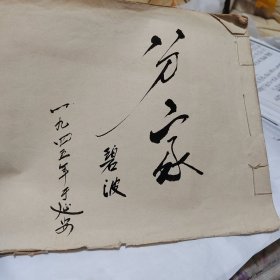 分家
碧波
一九四五年于延安